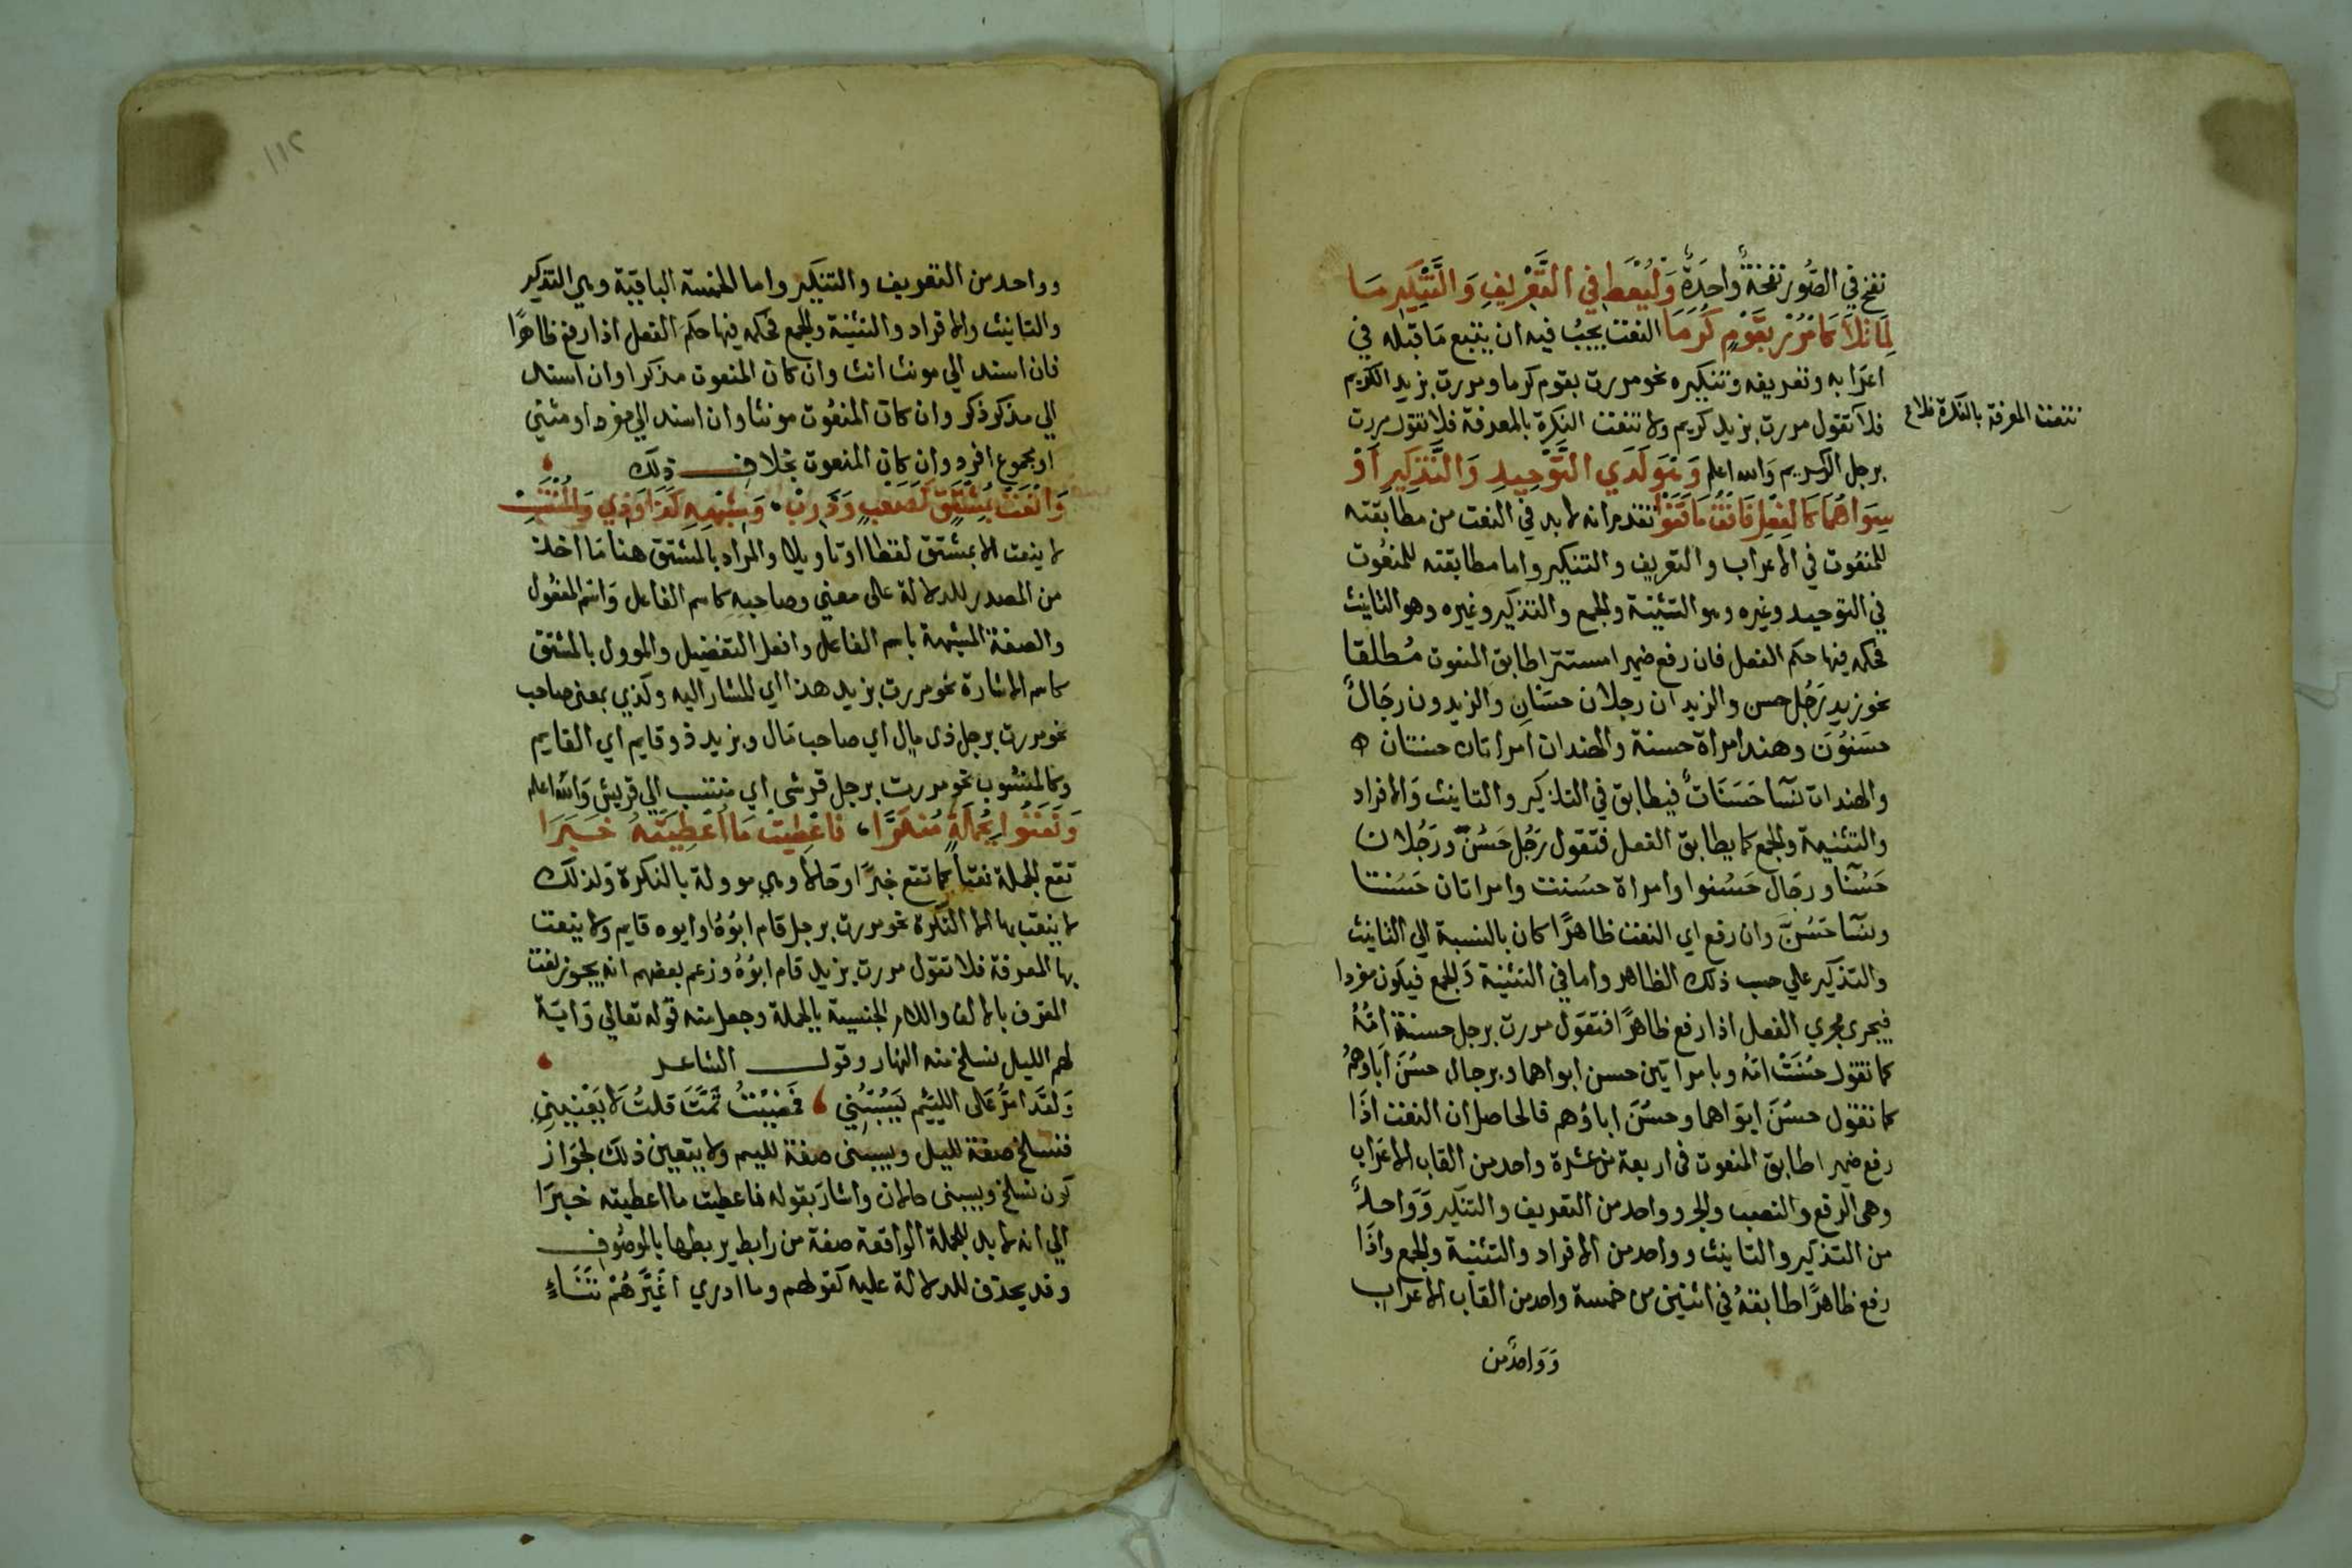 نفخ في الصُّور نفخةٌ واحِدَةٌ وَلْيُعْطَ في التَّعْرِيفِ وَالتَّنْكِيرِ مَا
لِمَا تَلاَ كَامْرُرْ بِقَوْمٍ كُرَمَا النعت يجبُ فيه ان يتبع مَا قبله في
اعرَابه وتعريفه وتنكيره نحو مررت بقوم كرما ومررت بزيد الكريم
تنعت المعرفة بالنكرة فلا
فلا تقول مررت بزيد كريم ولا تنعت النكرة بالمعرفة فلا تقول مررت
برجل الكريم وَالله اعلم وَهْوَ لَدَي التَّوْحِيدِ وَالتَّذْكِيرِ أوْ
سِوَاهُمَا كَالْفِعْلِ فَاقْفُ مَا قَفَوْا تقدم انه لا بد في النعت من مطابقته
للمنعُوت في الاعراب والتعريف والتنكير واما مطابقته للمنعُوت
في التوحيد وغيره وهو التثنية والجمع والتذكير وغيره وهو التانيث
فحكمه فيها حكم الفعل فان رفع ضميرا مستترا طابق المنعوت مُطلقا
نحو زيد رَجُل حسن والزيدان رجلان حسَنانِ والزيدون رجَالٌ
حسَنوُنَ وهند امراة حسنة والهندان امراتان حسنتان
والهندات نسَآ حَسَنَاتٌ فيطابق في التذكير والتانيث وَالافراد
والتثنية والجمع كما يطابق الفعل فتقول رَجُل حَسُنَ ورَجُلان
حَسُنا ورجَال حَسُنوا وامراة حسُنت وامراتان حَسُنتا
ونسَآ حَسُنَّ وان رفع اي النعت ظاهرًا كان بالنسبة الي التانيث
والتذكير علي حسب ذلك الظاهر واما في التثنية وَالجمع فيكون مفردا
فيجري مجري الفعل اذا رفع ظاهرًا فتقول مررت برجل حسنة امّهُ
كما تقول حسُنَتْ امّه وبامراتين حسن ابواهما وبرجال حسُنَ اباؤهمُ
كما تقول حسُنَ ابوَاهما وحسُنَ اباؤهم فالحاصل ان النعت اذَا
رفع ضميرا طابق المنعوت في اربعة من عشرة واحد من القاب الاعرَاب
وهي الرفع والنصب والجر وواحد من التعريف والتنكير وَوَاحدٌ
من التذكير والتانيث وواحد من الافراد والتثنية والجمع واذَا
رفع ظاهرًا طابقهُ في اثنين من خمسة واحد من القاب الاعراب
وَوَاحدٌ من
١١٢
وواحد من التعريف والتنكير واما الخمسة الباقية وهي التذكير
والتانيث والافراد والتثنية والجمع فحكمه فيها حكم الفعل اذا رفع ظاهرًا
فان اسند الي مونث انث وان كان المنعوت مذكرا وان اسند
الي مذكر ذكر وان كان المنعُوت مونثا وان اسند الي مفرد او مثني
او مجموع افرد وان كان المنعوت بخلاف ذلك
وَانْعَتْ بِمُشْتَقٍّ كَصَعْبٍ وَذَرِبْ وَشِبْهِهِ كَذَا وَذِي وَالمُنْتَسِبْ
لا ينعت الا بمشتق لفظا او تاويلا والمراد بالمشتق هنا مَا اخذ
من المصدر للدلالة علي معني وصاحبِهِ كاسم الفاعل وَاسْم المفعُول
والصفة المشبهة باسم الفاعل وافعل التفضيل والموول بالمشتق
كاسم الاشارة نحو مررت بزيد هذا اي المشار اليه وكذي بمعني صاحب
نحو مررت برجل ذي مال اي صاحب مَال وبزيد ذو قايم اي القايم
وكالمنسُوب نحو مررت برجل قرشي اي منتسب الي قريش وَالله اعلم
وَنَعَتُوا بِجُمْلَةٍ مُنَكَّرَا فَاعْطِيَتْ مَا اُعْطِيَتْهُ خَبَرَا
تقع الجملة نعتاً كما تقع خبرًا وحَالا وهي موولة بالنكرة وَلذلك
لا ينعَت بها الا النكرة نحو مررت برجل قام ابوُهُ او ابوه قايم ولا ينعت
بها المعرفة فلا تقول مررت بزيد قام ابوُهُ وزعم بعضهم انه يجوز نعت
المعرف بالالف واللام الجنسية بالجملة وجعل منه قوله تعالي وَايَة
لهم الليل نسلخ منه النهار وقول الشاعر
وَلقَد امرُّ عَلَى اللئيم يَسُبُّنِي فَمَضَيْتُ ثُمَّتَ قلتُ لا يَعْنِينِي
فنسلخ صفة لليل ويسبني صفة لليم ولا يتعين ذلك لجوَاز
كون نسلخ ويسبني حالان واشارَ بقوله فاعطيت ما اعطيته خبرَا
الي انه لا بد للجملة الواقعة صفة من رابط يربطها بالموصُوف
وقد يحذف للدلالة عليه كقولهم وما ادري اَغَيَّرَهُمْ تَنَاءٍ